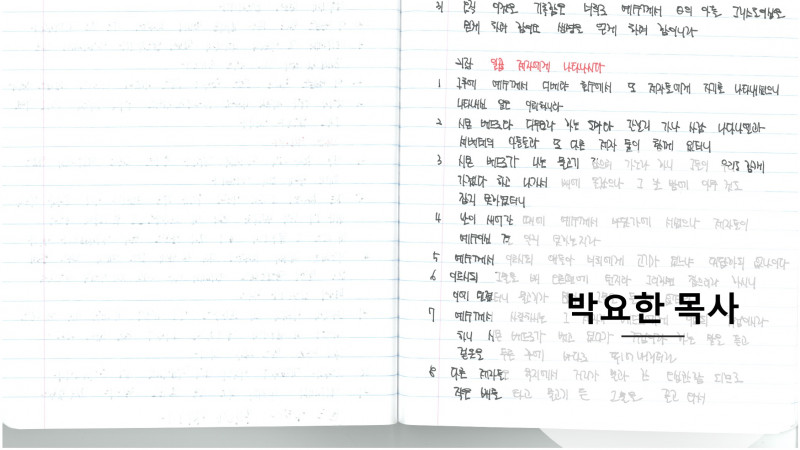 31 오직 이것을 기록함은 너희로 예수께서 하나님의 아들 그리스도이심을
믿게 하려 함이요
21장 일곱 제자에게 나타나시다
1 그후에 예수께서 디베랴 호수에서 또 제자들에게 자기를 나타내셨으니
나타내신 일은 이러하니라
2 시몬 베드로와 디두모라 하는 도마와 갈릴리 가나 사람 나다나엘과
세베대의 아들들과 또 다른 제자 둘이 함께 있더니
3 시몬 베드로가 나는 물고기 잡으러 가노라 하니 그들이 우리도 함께
가겠다 하고 나가서 배에 올랐으나 그 날 밤에 아무 것도
잡지 못하였더니
4 날이 새어갈 때에 예수께서 바닷가에 서셨으나 제자들이
예수이신 줄 알지 못하는지라
5 예수께서 이르시되 얘들아 너희에게 고기가 있느냐 대답하되 없나이다
6 이르시되 그물을 배 오른편에 던지라 그리하면 잡으리라 하시니
이에 던졌더니 물고기가
박요한 목사
7 예수께서 사랑하시는 그
하니 시몬 베드로가 벗고 있다가
겉옷을 두른 후에 바다로 뛰어 내리더라
8 다른 제자들은 육지에서 거리가 불과 한 오십 칸쯤 되므로
작은 배를 타고 물고기 든 그물을 끌고 와서